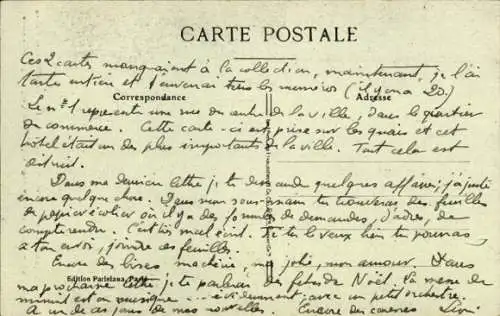 CARTE POSTALE
Ces 2 cartes manquaient à la collection, maintenant, je l'ai
toute entière et t'enverrai tous les numéros (il y en a 20).
Correspondance Adresse
Le n° 1 représente une rue du centre de la ville, dans le quartier
du commerce. Cette carte-ci est prise sur les quais et cet
hôtel était un des plus importants de la ville. Tout cela est
détruit.
Dans ma dernière lettre je te demande quelques affaires, j'ajoute
encore quelque chose. Dans mon sous-main tu trouveras des feuilles
de papier écolier où il y a des formules de demandes, d'ordres, de
compte rendu. C'est mal écrit. Si tu le veux bien tu pourras,
à ton envoi, joindre ces feuilles.
Encore des bises ma chérie, ma jolie, mon amour. Dans
Edition Parisiana, Paris
ma prochaine lettre je te parlerai des fêtes de Noël. La messe de
minuit est en musique évidemment avec un petit orchestre.
A un de ces jours de mes nouvelles. Encore des caresses